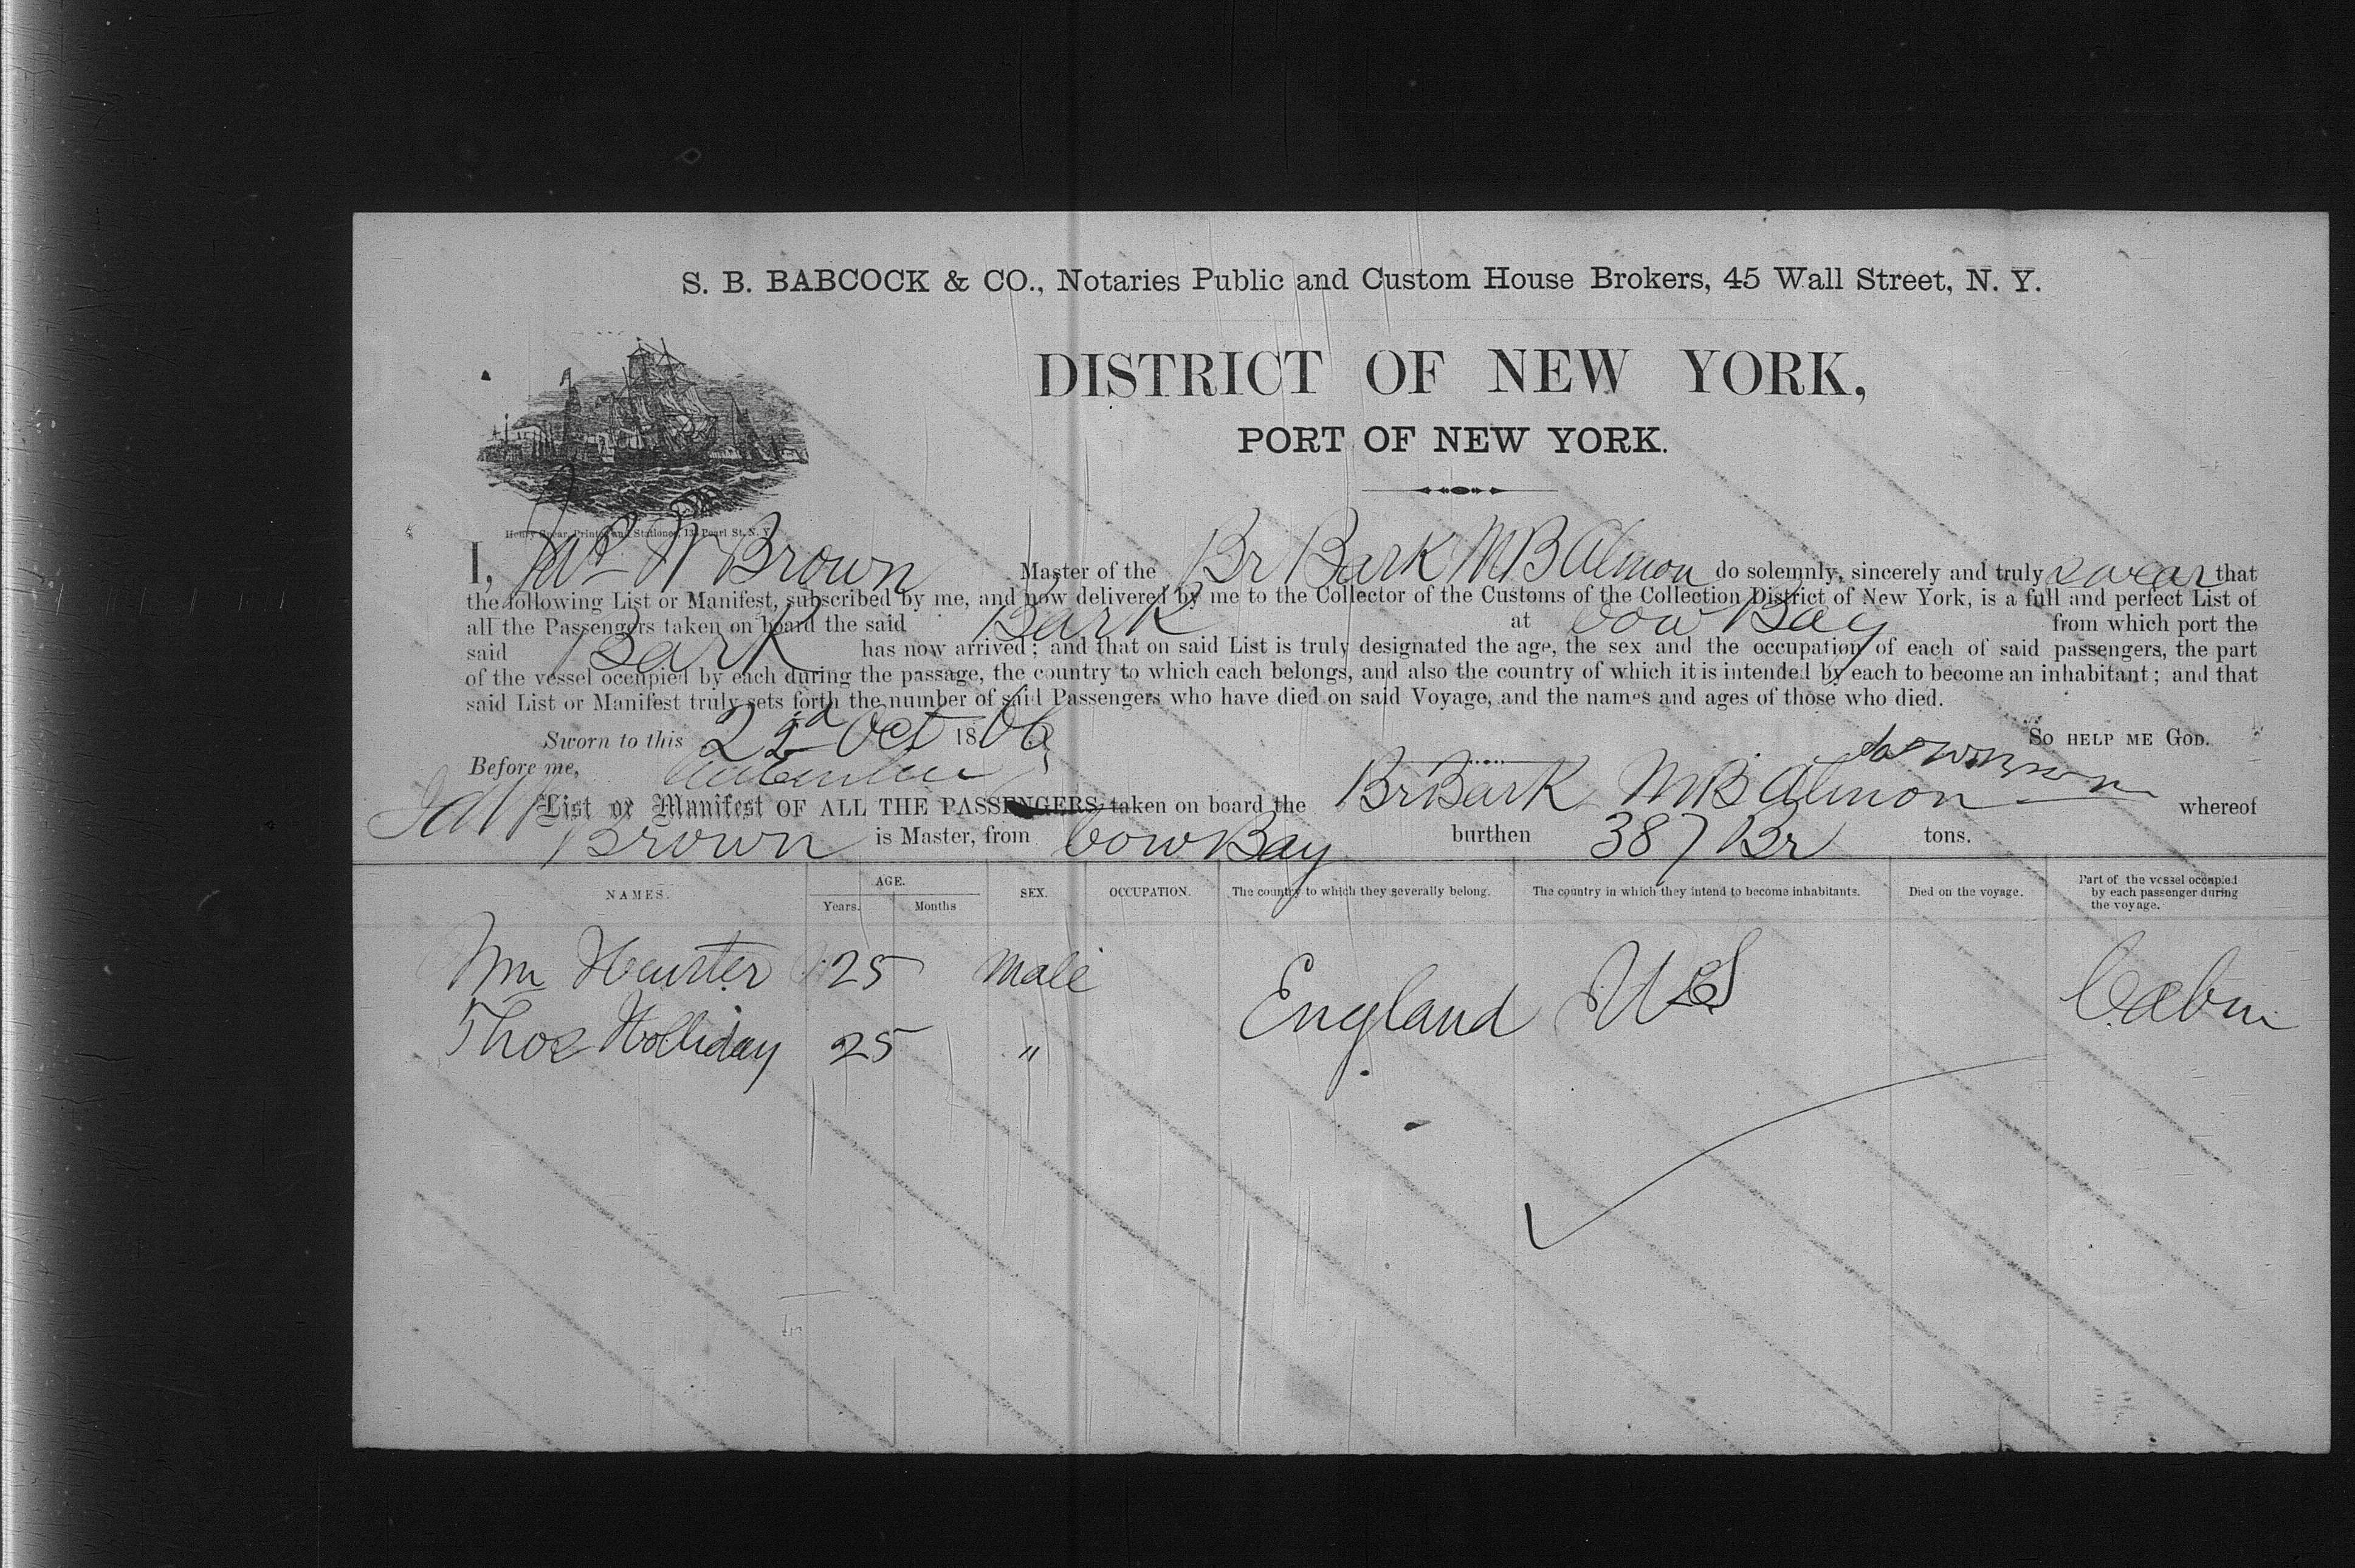 S. B. BABCOCK & CO., Notaries Public and Custom House Brokers, 45 Wall Street, N. Y.
DISTRICT OF NEW YORK,
PORT OF NEW YORK.
Henry Spear, Printer and Stationer, Pearl St. N. Y.
I, Jas W Brown Master of the Br Bark M B Almon do solemnly, sincerely and truly swear that
the following List or Manifest, subscribed by me, and now delivered by me to the Collector of the Customs of the Collection District of New York, is a full and perfect List of
all the Passengers taken on board the said Bark at Cow Bay from which port the
said Bark has now arrived; and that on said List is truly designated the age, the sex and the occupation of each of said passengers, the part
of the vessel occupied by each during the passage, the country to which each belongs, and also the country of which it is intended by each to become an inhabitant; and that
said List or Manifest truly sets forth the number of said Passengers who have died on said Voyage, and the names and ages of those who died.
Sworn to this 22d Oct 1866 SO HELP ME GOD.
Before me,
List or Manifest OF ALL THE PASSENGERS taken on board the Br Bark M B Almon whereof
Brown is Master, from Cow Bay burthen 387 Br tons.
NAMES. AGE. SEX. OCCUPATION. The country to which they severally belong. The country in which they intend to become inhabitants. Died on the voyage. Part of the vessel occupied by each passenger during the voyage.
Years. Months
Wm Hunter 25 Male England US Cabin
Thos Holliday 25 "